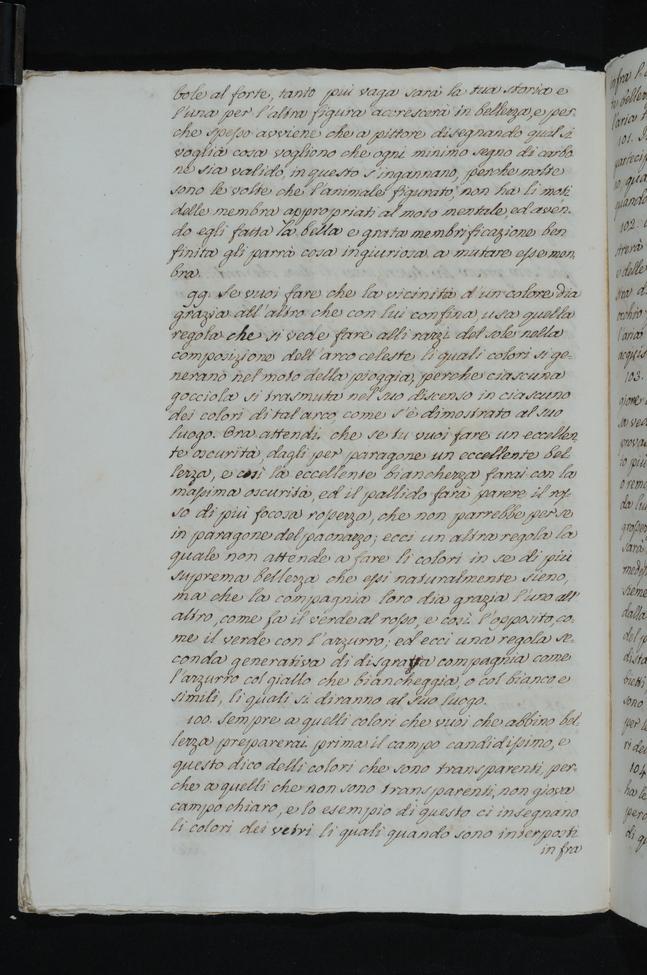 bole al forte, tanto più vaga sarà la tua storia e
l'una per l'altra figura accrescerà in bellezza, e per-
che spesso avviene che a pittore disegnando qual si
voglia cosa vogliono che ogni minimo segno di carbo
ne sia valido, in questo s'ingannano, perche molte
sono le volte che l'animale figurato, non ha li moti
delle membra appropriati al moto mentale, ed aven-
do egli fatta la bella e grata membrificazione ben
finita gli parrà cosa ingiuriosa a mutare esse mem-
bra.
99. Se vuoi fare che la vicinità d'un colore dia
grazia all'altro che con lui confina, usa quella
regola che si vede fare alli razzi del sole nella
composizione dell'arco celeste li quali colori si ge-
nerano nel moto della pioggia, perche ciascuna
gocciola si trasmuta nel suo discenso in ciascuno
dei colori di tal arco, come s'è dimostrato al suo
luogo. Ora attendi, che se tu vuoi fare un eccellen
te oscurità, dagli per paragone un eccellente bel-
lezza, e così la eccellente bianchezza farai con la
massima oscurità, ed il pallido farà parere il ros-
so di più focosa rossezza, che non parrebbe per se
in paragone del paonazzo; ecci un altra regola la
quale non attende a fare li colori in se di più
suprema bellezza che essi naturalmente sieno,
ma che la compagnia loro dia grazia l'uno all'
altro, come fa il verde al rosso, e così l'opposito, co-
me il verde con l'azzurro; ed ecci una regola se-
conda generativa di disgratta compagnia come
l'azzurro col giallo che biancheggia, o col bianco e
simili, li quali si diranno al suo luogo.
100. Sempre a quelli colori che vuoi che abbino bel
lezza preparerai prima il campo candidissimo, e
questo dico delli colori che sono transparenti, per-
che a quelli che non sono transparenti, non giova
campo chiaro, e lo esempio di questo ci insegnano
li colori dei vetri li quali quando sono interposti
in fra